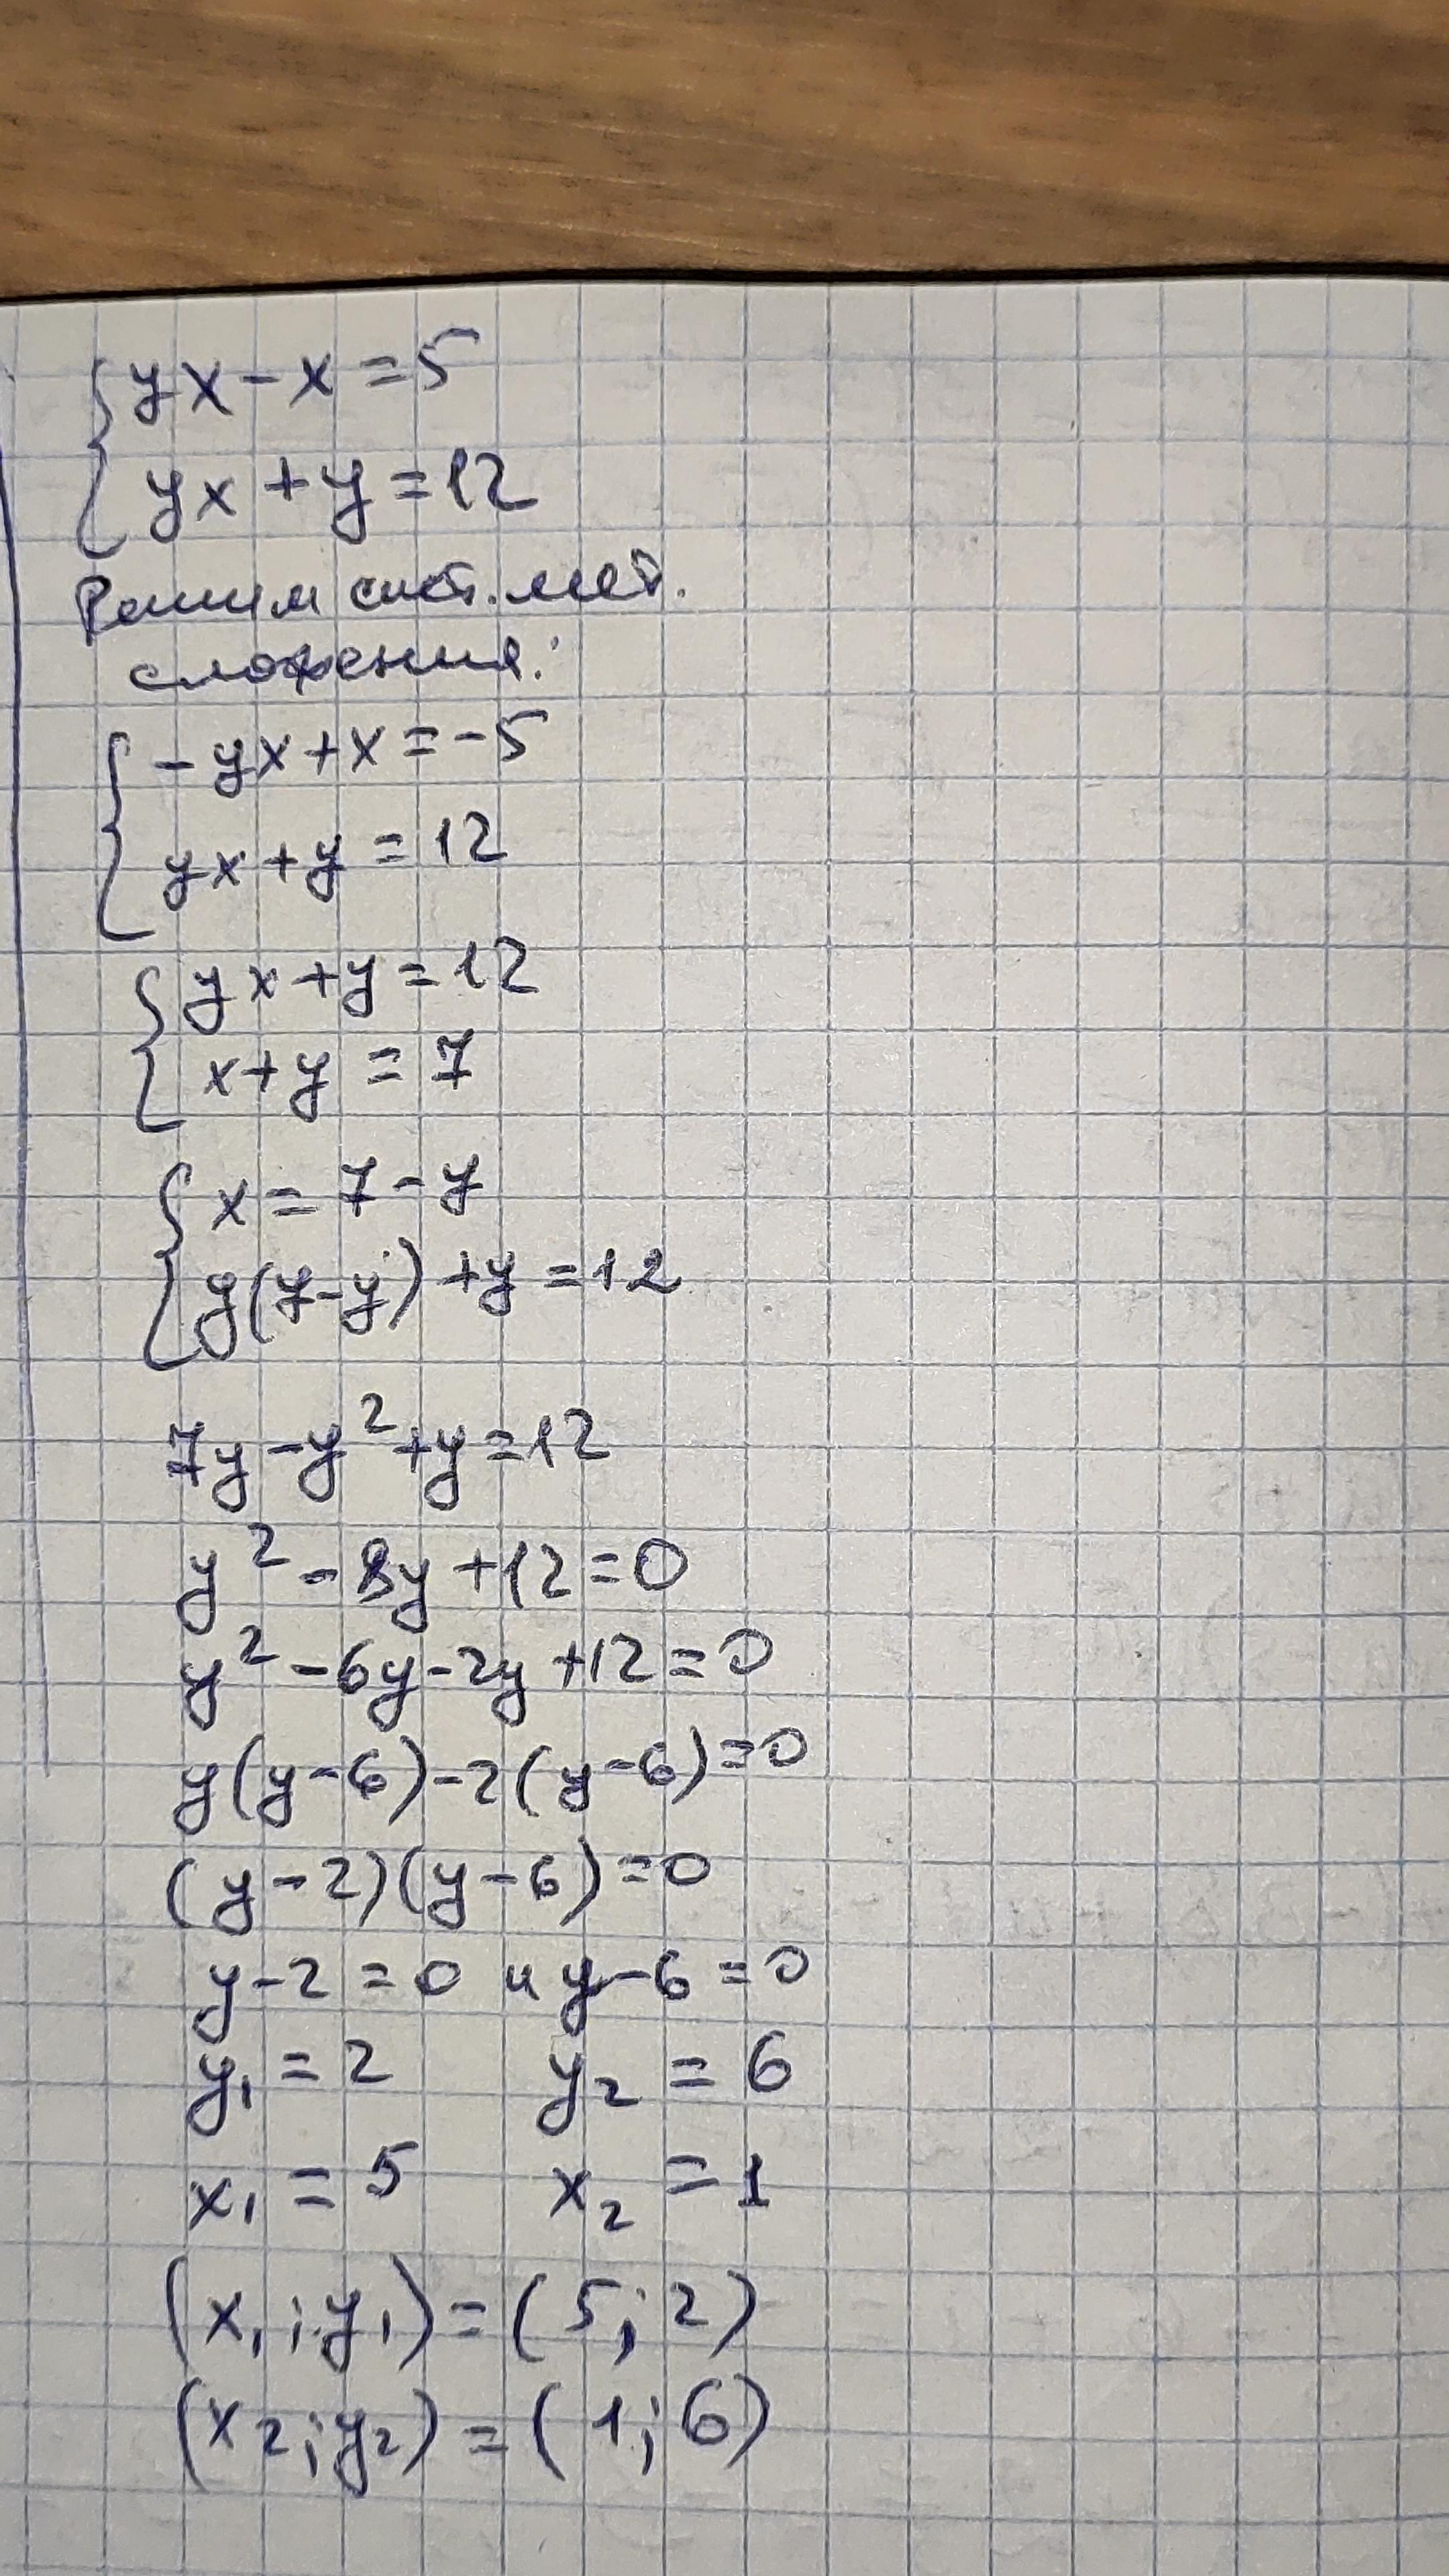 yx - x = 5
yx + y = 12
Решим сист. мет.
сложения:
-yx + x = -5
yx + y = 12
yx + y = 12
x + y = 7
x = 7 - y
y(7 - y) + y = 12
7y - y² + y = 12
y² - 8y + 12 = 0
y² - 6y - 2y + 12 = 0
y(y - 6) - 2(y - 6) = 0
(y - 2)(y - 6) = 0
y - 2 = 0 и y - 6 = 0
y₁ = 2 y₂ = 6
x₁ = 5 x₂ = 1
(x₁; y₁) = (5; 2)
(x₂; y₂) = (1; 6)